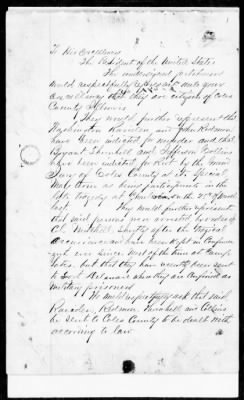 To His Excellency
The President of the United States
The undersigned petitioners
would respectfully represent unto your
excellency that they are citizens of Coles
County Illinois
They would further represent that
Washington and John Redmon
have been indicted for murder and that
Bryant Thornhill and Collins
have been indicted for Riot by the Grand
Jury of Coles County at its Special
May Term as being participants in the
late tragedy at Charleston on the 28th of March
last. They would further represent
that said persons were arrested by order of
Col. Mitchell shortly after the tragical
occurrence and have been kept in confine-
ment ever since most of the time at Camp
Yates, but that they have recently been sent
to Fort Delaware where they are confined as
military prisoners
We would respectfully ask that said
Redmon, Thornhill and Collins
be sent to Coles County to be dealt with
according to law.